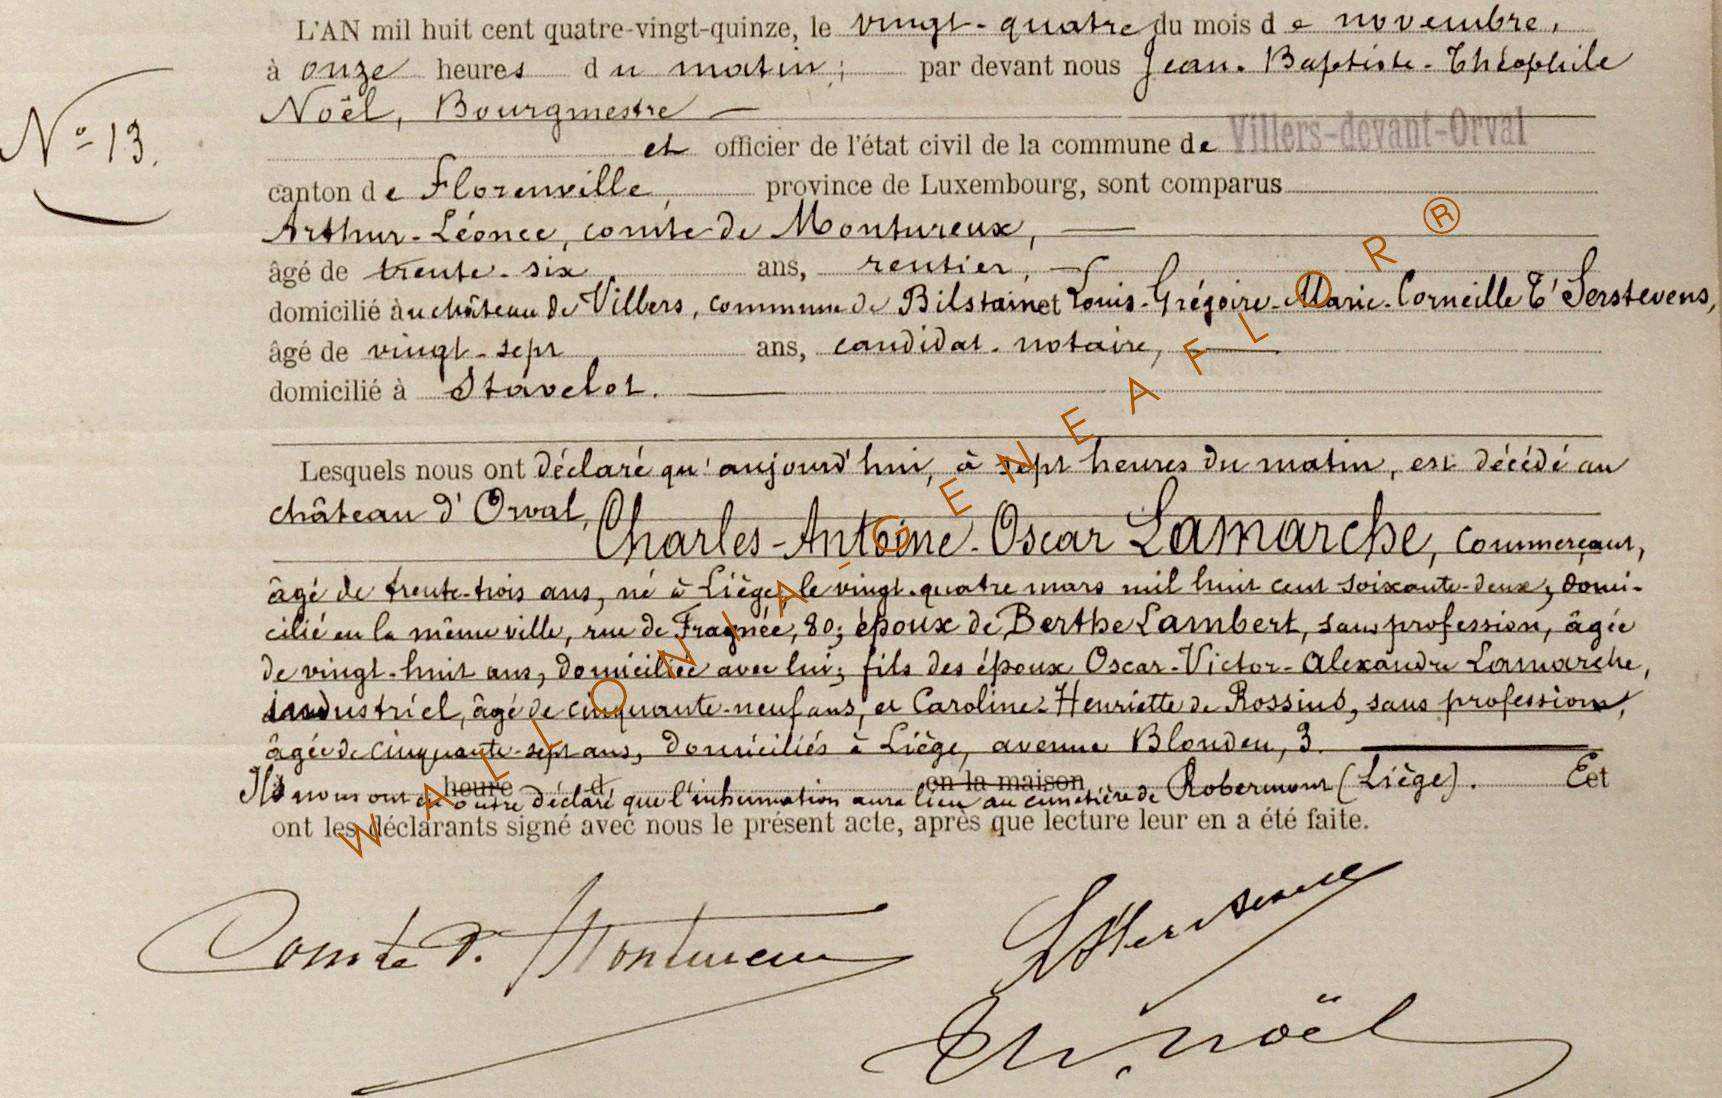 L'AN mil huit cent quatre-vingt-quinze, le vingt-quatre du mois de novembre,
à onze heures du matin; par devant nous Jean-Baptiste-Théophile
Noël, Bourgmestre
N° 13.
et officier de l'état civil de la commune de Villers-devant-Orval
canton de Florenville, province de Luxembourg, sont comparus
Arthur-Léonce, comte de Montureux,
âgé de trente-six ans, rentier,
domicilié au château de Villers, commune de Bilstain et Louis-Grégoire-Marie-Corneille T'Serstevens,
âgé de vingt-sept ans, candidat-notaire,
domicilié à Stavelot.
Lesquels nous ont déclaré qu'aujourd'hui, à sept heures du matin, est décédé au
château d'Orval, Charles-Antoine-Oscar Lamarche, commerçant,
âgé de trente-trois ans, né à Liège, le vingt-quatre mars mil huit cent soixante-deux, domi-
cilié en la même ville, rue de Fragnée, 80; époux de Berthe Lambert, sans profession, âgée
de vingt-huit ans, domiciliée avec lui; fils des époux Oscar-Victor-Alexandre Lamarche,
industriel, âgé de cinquante-neuf ans, et Caroline-Henriette de Rossius, sans profession,
âgée de cinquante-sept ans, domiciliés à Liège, avenue Blonden, 3.
heure d en la maison
Ils nous ont en outre déclaré que l'inhumation aura lieu au cimetière de Robermont (Liège). Eet
ont les déclarants signé avec nous le présent acte, après que lecture leur en a été faite.
Comte d. Montureux
Th. Noël
WALLONIA-GENEAFLOR®